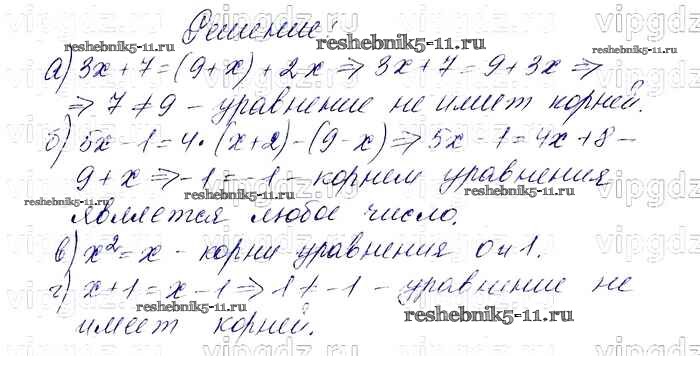 Решение.
а) 3x + 7 = (9 + x) + 2x ⇒ 3x + 7 = 9 + 3x ⇒
⇒ 7 ≠ 9 – уравнение не имеет корней.
б) 5x - 1 = 4 · (x + 2) - (9 - x) ⇒ 5x - 1 = 4x + 8 -
9 + x ⇒ -1 = -1 – корнем уравнения
является любое число.
в) x² = x – корни уравнения 0 и 1.
г) x + 1 = x - 1 ⇒ 1 ≠ -1 – уравнение не
имеет корней.
reshebnik5-11.ru
reshebnik5-11.ru
reshebnik5-11.ru
reshebnik5-11.ru
reshebnik5-11.ru
reshebnik5-11.ru
reshebnik5-11.ru
vipgdz